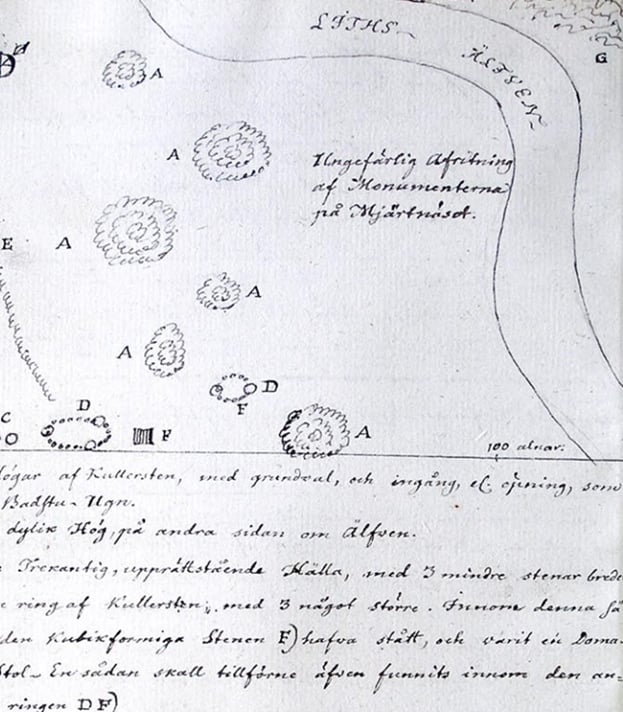 LITHS
ÄLFVEN
G
A
A
Ungefärlig Afritning
af Monumenterna
på Mjärtnäset.
E A
A
A
D
F
C
D
F
A
100 alnar.
högar af Kullersten, med grundval, och ingång, el. öpning, som
Badstu-Ugn.
dylik Hög, på andra sidan om Älfven.
Trekantig, upprättstående Hälla, med 3 mindre stenar brede
ring af Kullersten, med 3 något större. Innom denna
den kubikformiga Stenen F) hafva stått, och varit en Doma-
Stol- En sådan skall tillförne äfven funnits innom den an=
ringen DF)